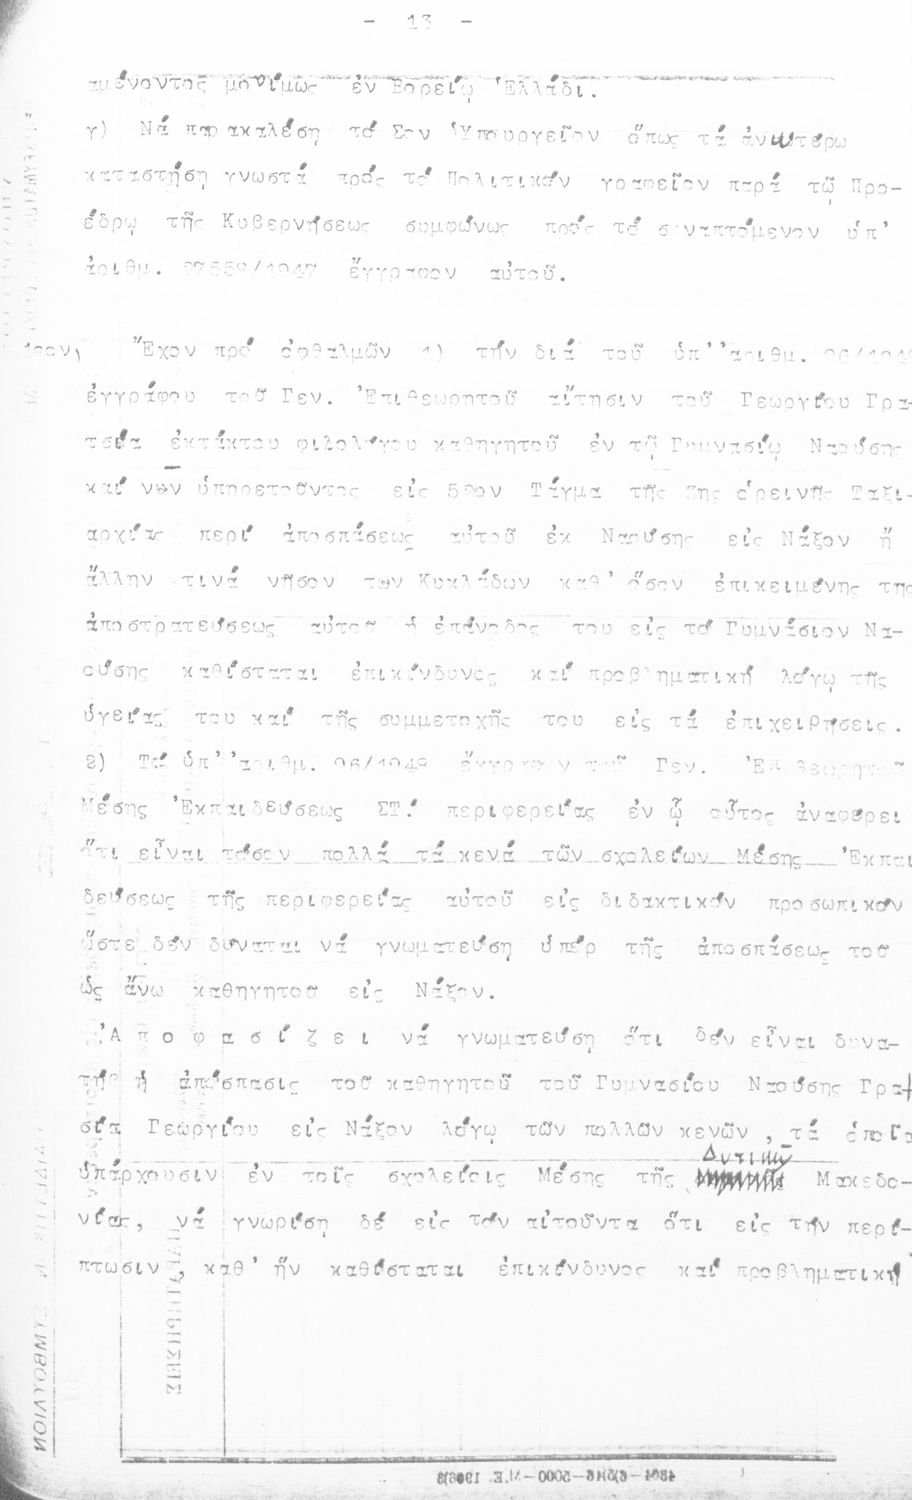 - 13 -
αμένοντος μονίμως ἐν Βορείῳ Ἑλλάδι.
γ) Νά παρακαλέση τό Σον Ὑπουργεῖον ὅπως τά ἀνωτέρω
καταστήση γνωστά πρός τό Πολιτικόν γραφεῖον παρά τῷ Προ-
έδρῳ τῆς Κυβερνήσεως συμφώνως πρός τό συναπτόμενον ὑπ'
ἀριθμ. /1947 ἔγγραφον αὐτοῦ.
Ἔχον πρό ὀφθαλμῶν 1) τήν διά τοῦ ὑπ' 'αριθμ. 96/194
ἐγγράφου τοῦ Γεν. Ἐπιθεωρητοῦ αἴτησιν τοῦ Γεωργίου Γρα-
τσία ἐκτάκτου φιλολόγου καθηγητοῦ ἐν τῷ Γυμνασίῳ Ναούσης
καί νῦν ὑπηρετοῦντος εἰς Τάγμα τῆς ὀρεινῆς Ταξι-
αρχίας περί ἀποσπάσεως αὐτοῦ ἐκ Ναούσης εἰς Νάξον ἤ
ἄλλην τινά νῆσον των Κυκλάδων καθ' ὅσον ἐπικειμένης της
ἀποστρατεύσεως αὐτοῦ ἡ ἐπάνοδος του εἰς τό Γυμνάσιον Να-
ούσης καθίσταται ἐπικίνδυνος καί προβληματική λόγῳ τῆς
ὑγείας του καί τῆς συμμετοχῆς του εἰς τά ἐπιχειρήσεις.
2) Τό ὑπ' 'αριθμ. 96/1948 ἔγγραφον τοῦ Γεν. Ἐπιθεωρητοῦ
Μέσης Ἐκπαιδεύσεως ΣΤ.' περιφερείας ἐν ᾧ οὗτος ἀναφέρει
ὅτι εἶναι τόσον πολλά τά κενά τῶν σχολείων Μέσης Ἐκπαι
δεύσεως τῆς περιφερείας αὐτοῦ εἰς διδακτικόν προσωπικόν
ὥστε δέν δύναται νά γνωματεύση ὑπέρ τῆς ἀποσπάσεως τοῦ
ὡς ἄνω καθηγητοῦ εἰς Νάξον.
Ἀ π ο φ α σ ί ζ ε ι νά γνωματεύση ὅτι δέν εἶναι δυνα-
τής ἡ ἀπόσπασις τοῦ καθηγητοῦ τοῦ Γυμνασίου Ναούσης Γρατ
σία Γεωργίου εἰς Νάξον λόγῳ τῶν πολλῶν κενῶν, τά ὁποῖα
ὑπάρχουσιν ἐν τοῖς σχολείοις Μέσης τῆς Δυτικῆς Μακεδο-
νίας, νά γνωρίση δέ εἰς τόν αἰτοῦντα ὅτι εἰς τήν περί-
πτωσιν, καθ' ἥν καθίσταται ἐπικίνδυνος καί προβληματική
ΣΥΜΒΟΥΛΙΟΝ